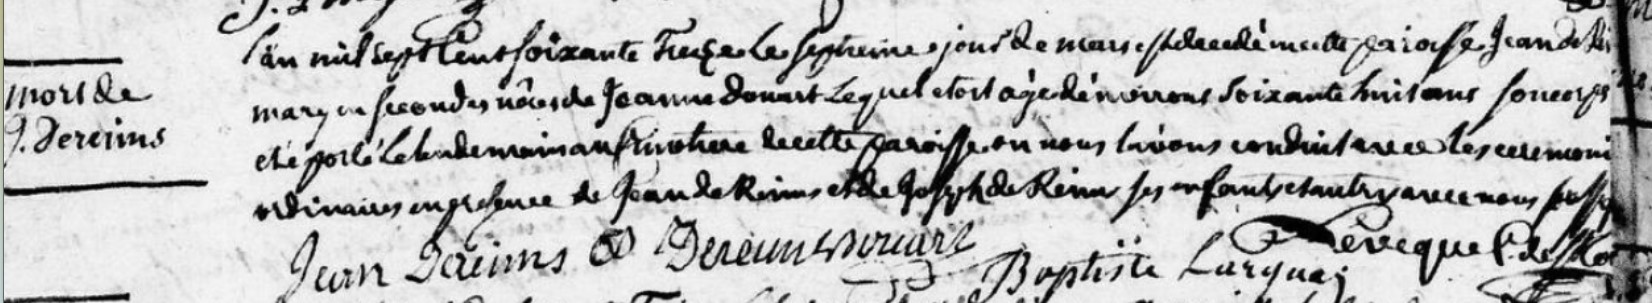 mort de
J. Dereims
L'an mil sept Cent soixante Treize Le septieme jour de mars est decedé en cette paroisse Jean de
mary en secondes nôces de Jeanne Douart Lequel etoit agé d'environs Soixante huit ans son corps
eté porté Le lendemain au Cimetiere de cette paroisse ou nous l'avons conduit avec les ceremoni
ordinaires en presence de Jean de Reims et de Joseph de Reims ses enfants et autres avec nous
Jean Dereims Dereims Douart
Baptiste Lévéque